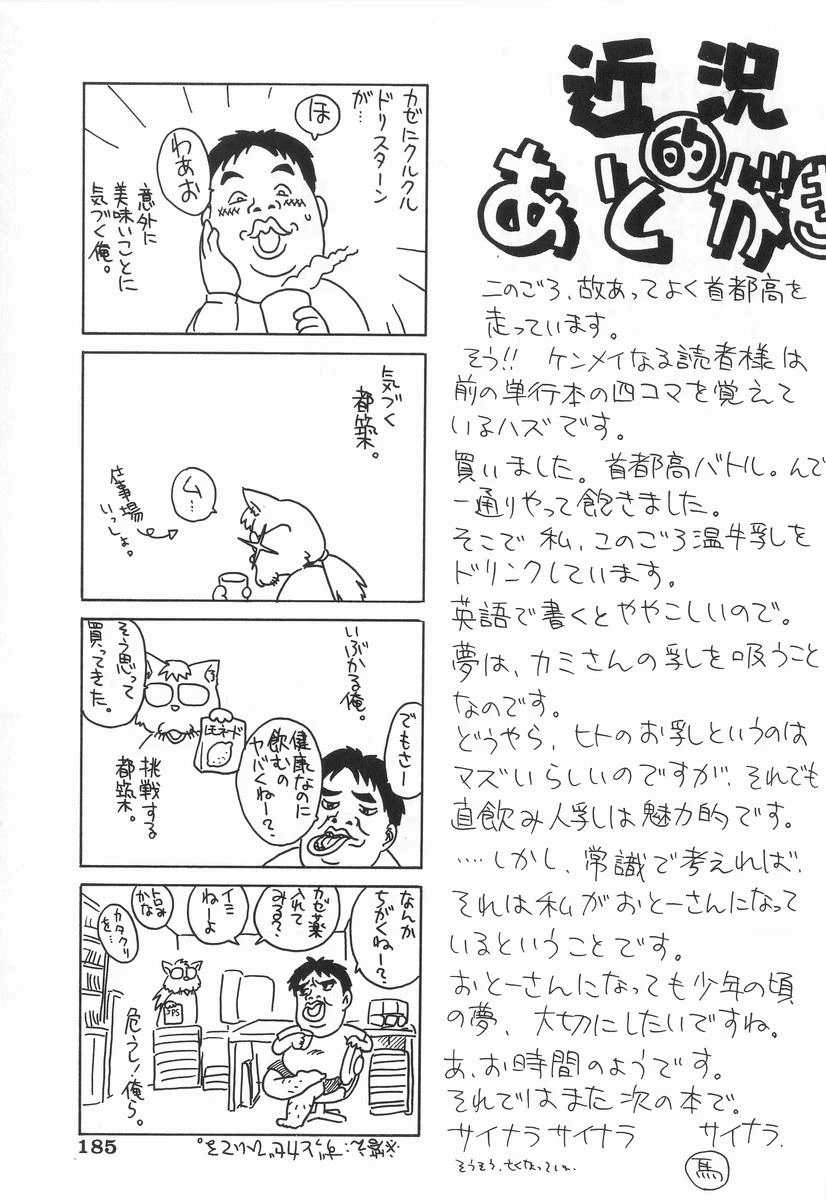 近況
的
あとがき
このごろ、故あってよく首都高を
走っています。
そう!! ケンメイなる読者様は
前の単行本の四コマを覚えて
いるハズです。
買いました。首都高バトル。んで
一通りやって飽きました。
そこで私、このごろ温牛乳を
ドリンクしています。
英語で書くとややこしいので。
夢は、カミさんの乳を吸うこと
なのです。
どうやら、ヒトのお乳というのは
マズいらしいのですが、それでも
直飲み人乳は魅力的です。
....しかし、常識で考えれば、
それは私がおとーさんになって
いるということです。
おとーさんになっても少年の頃
の夢、大切にしたいですね。
あ、お時間のようです。
それではまた次の本で。
サイナラ サイナラ サイナラ.
そうそう、亡くなって
馬
カゼにクルクル
ドリスターン
が…
ほ
わぁお
意外に
美味いことに
気づく俺。
気づく
都築。
ム…
仕事場
いっしょ。
いぶかる俺。
でもさー
健康なのに
飲むの
ヤバくねー?
そう思って
買ってきた。
レモネード
挑戦する
都築。
なんか
ちがくねー?
カゼ薬
入れて
みる?
イミ
ねーよ
カタクリ
を…
危うし!俺ら。
185